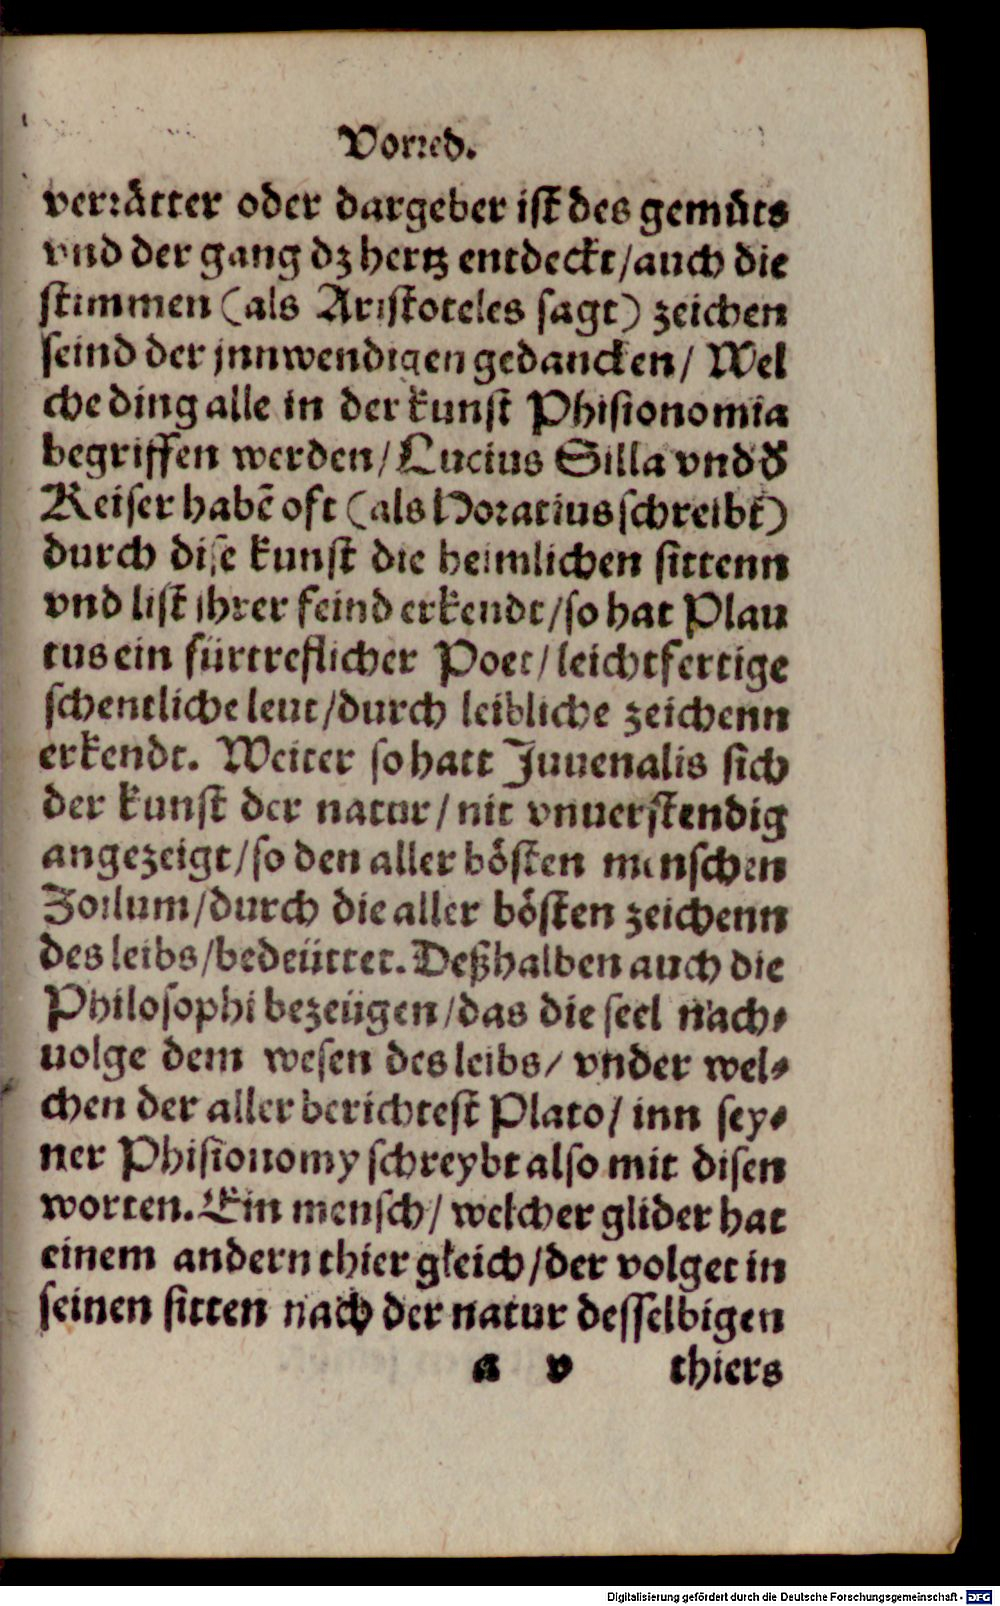 Vorred.
verrätter oder dargeber ist des gemůts
vnd der gang dz hertz entdeckt/auch die
stimmen (als Aristoteles sagt) zeichen
seind der jnnwendigen gedancken/ Wel
che ding alle in der kunst Phisionomia
begriffen werden/ Lucius Silla vnd d̕
Keiser habē oft (als Horatius schreibt)
durch dise kunst die heimlichen sittenn
vnd list ihrer feind erkendt/so hat Plau
tus ein fürtreflicher Poet/ leichtfertige
schentliche leut/durch leibliche zeichenn
erkendt. Weiter so hatt Juuenalis sich
der kunst der natur/ nit vnuerstendig
angezeigt/so den aller bösten menschen
Zoilum/durch die aller bösten zeichenn
des leibs/bedeüttet. Deßhalben auch die
Philosophi bezeügen/das die seel nach⸗
uolge dem wesen des leibs/ vnder wel⸗
chen der aller berichtest Plato/ inn sey⸗
ner Phisionomy schreybt also mit disen
worten. Ein mensch/ welcher glider hat
einem andern thier gleich/der volget in
seinen sitten nach der natur desselbigen
a v thiers
Digitalisierung gefördert durch die Deutsche Forschungsgemeinschaft - DFG